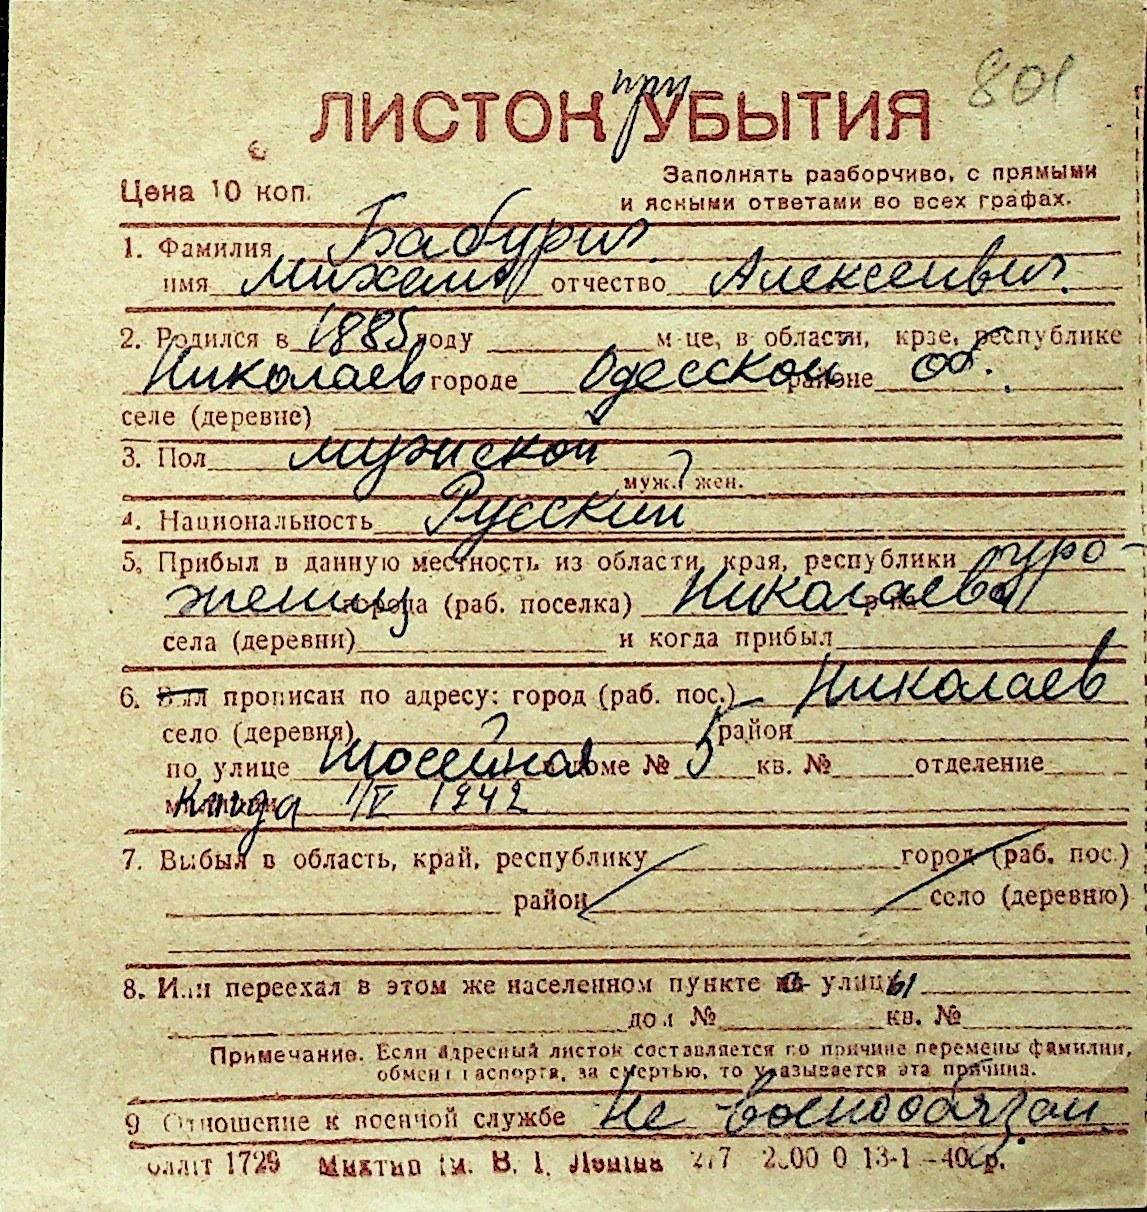 801
при
ЛИСТОК УБЫТИЯ
Цена 10 коп.
Заполнять разборчиво, с прямыми
и ясными ответами во всех графах.
1. Фамилия Бабурин
имя Михаил отчество Алексеевич
2. Родился в 1885 году м-це, в области, крае, республике
Николаев городе Одесской районе об.
селе (деревне)
3. Пол мужской
муж. жен.
4. Национальность Русский
5. Прибыл в данную местность из области, края, республики уро-
женец города (раб. поселка) Николаева
села (деревни) и когда прибыл
6. Был прописан по адресу: город (раб. пос.) Николаев
село (деревня) район
по улице Шосейная доме № 5 кв. № отделение
милиции когда 1/V 1942
7. Выбыл в область, край, республику город (раб. пос.)
район село (деревню)
8. Или переехал в этом же населенном пункте с улицы
дом № кв. №
Примечание. Если адресный листок составляется по причине перемены фамилии,
обмена паспорта, за смертью, то указывается эта причина.
9 Отношение к военной службе Не военнообязан.
1729 Миктип им. В. І. Леніна 277 13-1-40 р.